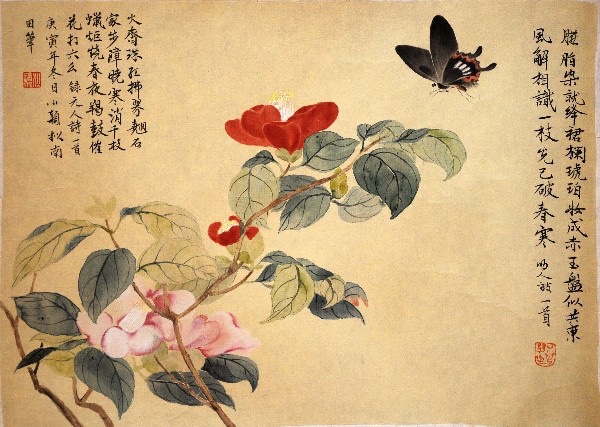 臙脂染就絳裙襴琥珀妝成赤玉盤似共東
風解相識一枝先已破春寒 明人詩一首
火齊珠紅拂翠翹石
家步障晚寒消千枝
蠟炬燒春夜羯鼓催
花打六么 錄元人詩一首
庚寅年冬月小穎南
田筆